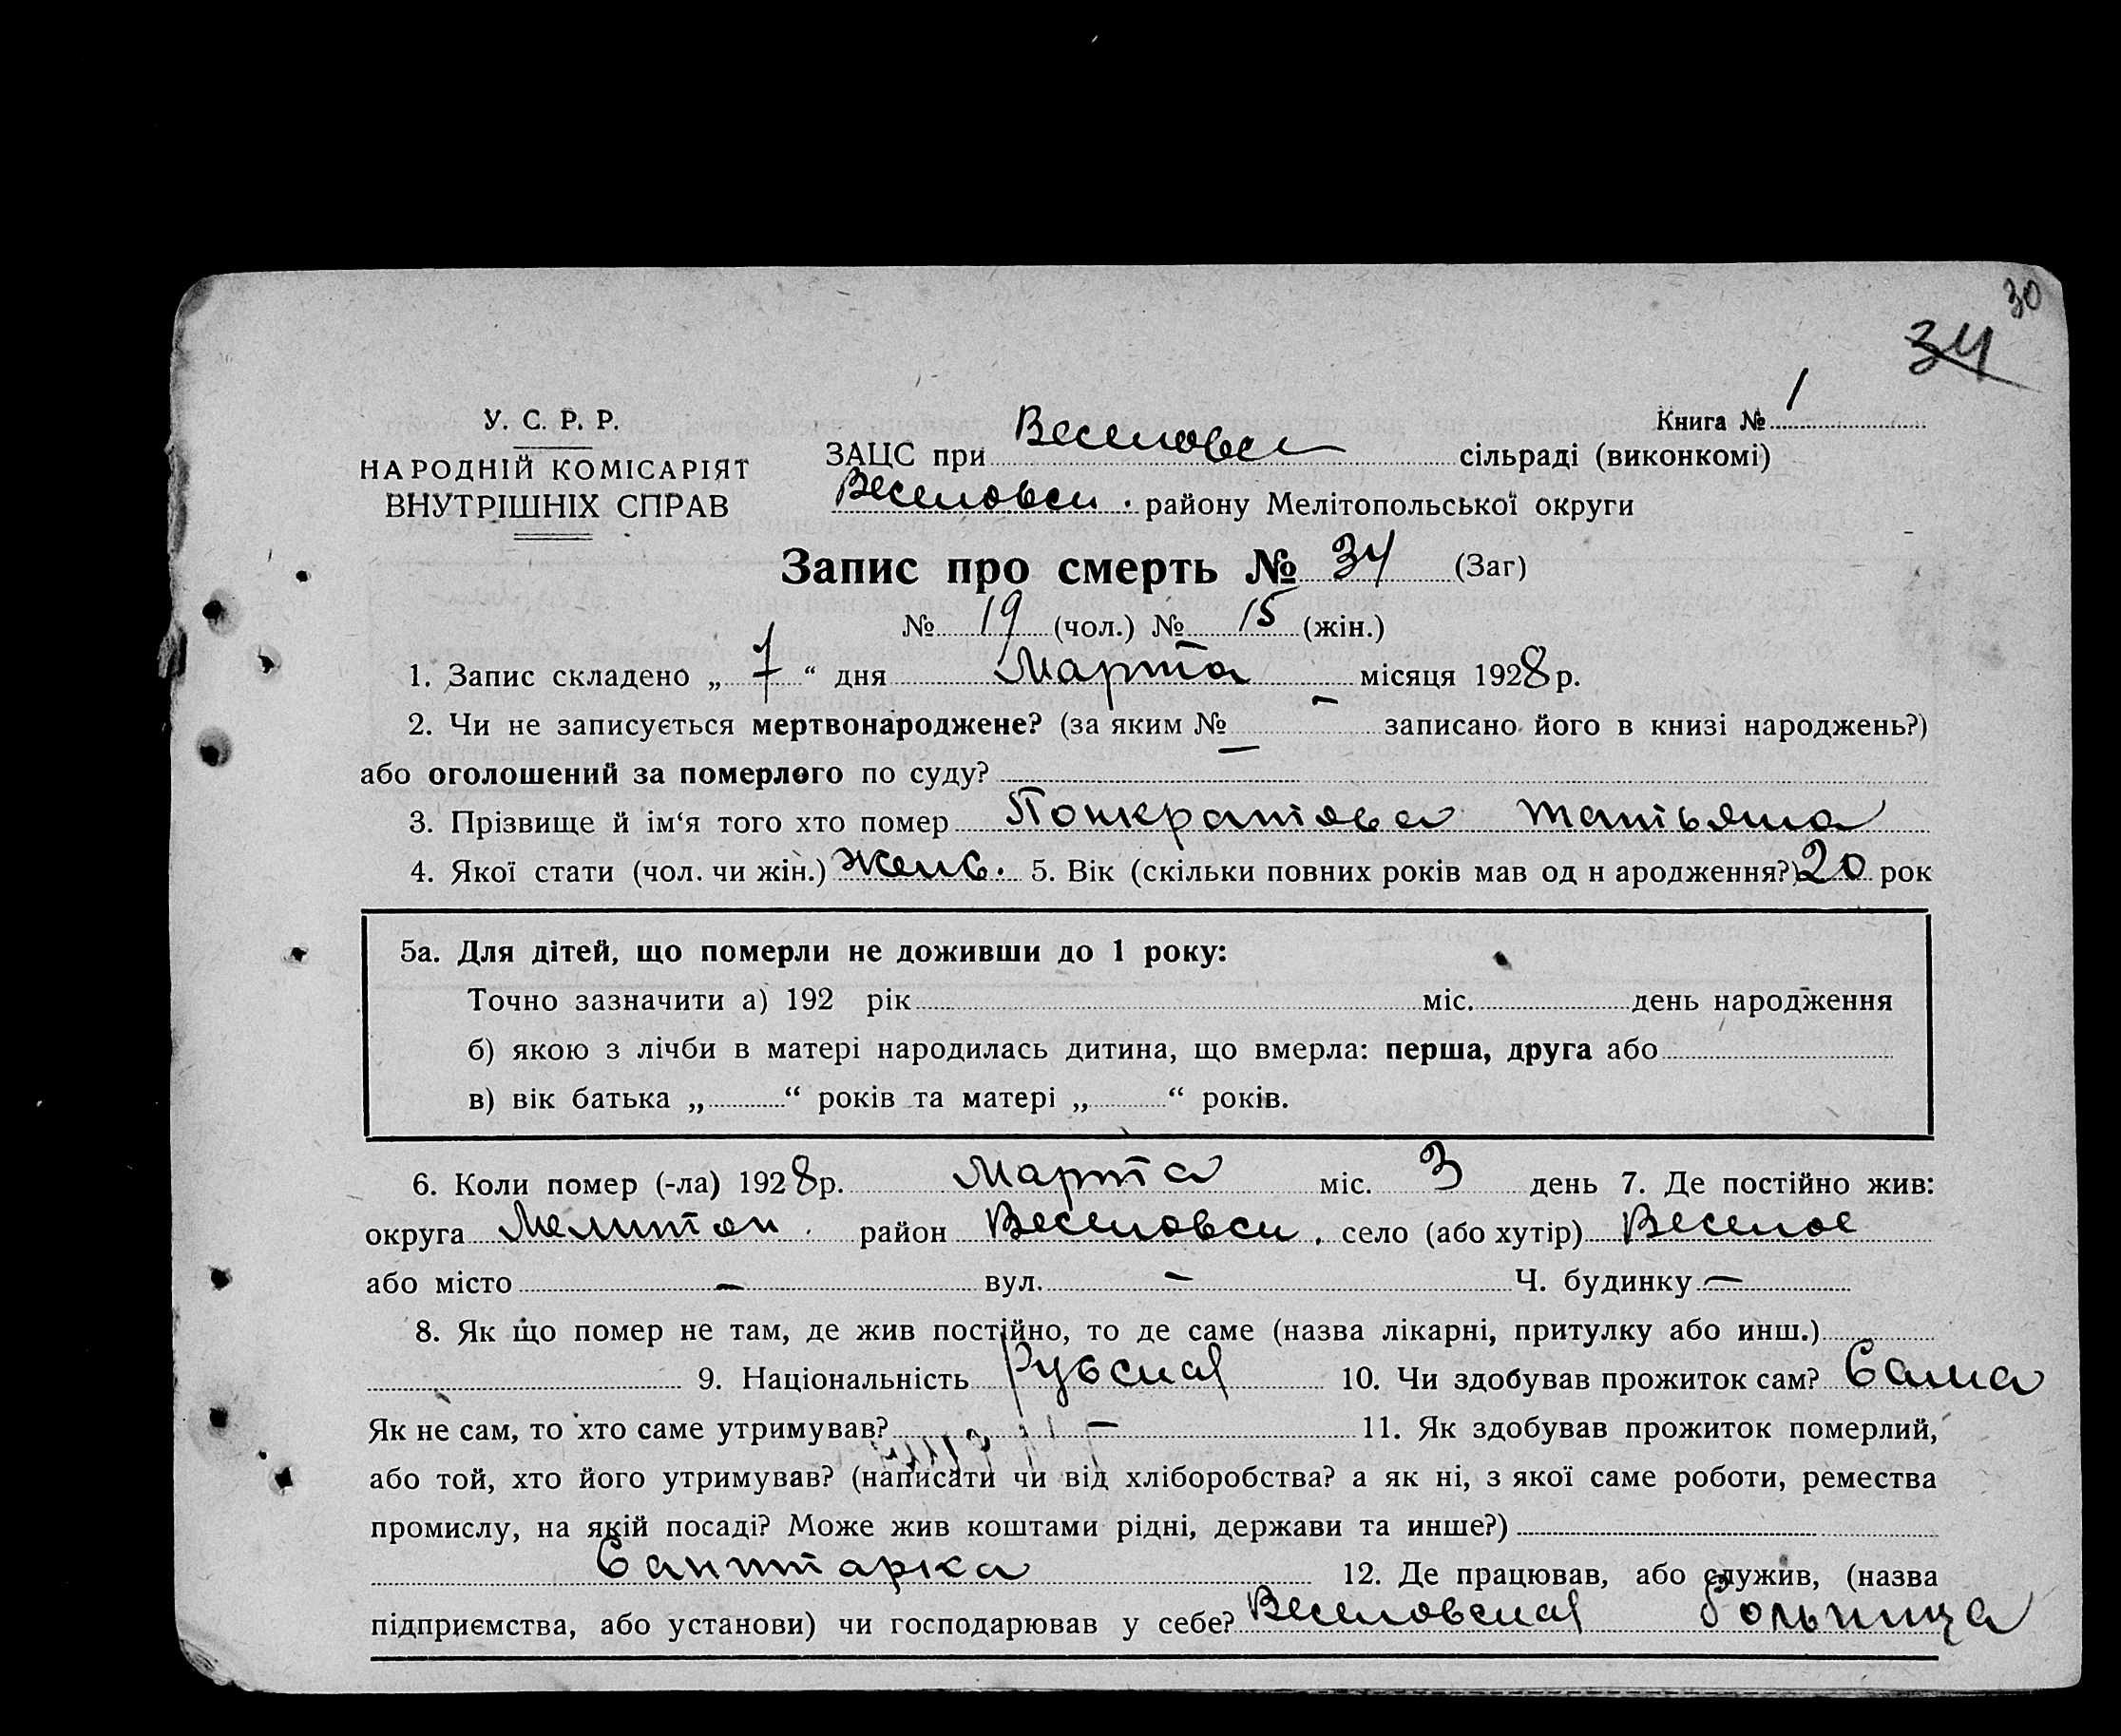 30
34
У. С. Р. Р.
Книга № 1
НАРОДНІЙ КОМІСАРІЯТ
ВНУТРІШНІХ СПРАВ
ЗАЦС при Веселовск сільраді (виконкомі)
Веселовск. району Мелітопольської округи
Запис про смерть № 34 (Заг)
№ 19 (чол.) № 15 (жін.)
1. Запис складено „ 7 “ дня Марта місяця 1928 р.
2. Чи не записується мертвонароджене? (за яким № – записано його в книзі народжень?)
або оголошений за померлого по суду? –
3. Прізвище й ім‘я того хто помер Понкратова Татьяна
4. Якої стати (чол. чи жін.) Женс. 5. Вік (скільки повних років мав од н ародження?) 20 рок
5а. Для дітей, що померли не доживши до 1 року:
Точно зазначити а) 192 рік міс. день народження
б) якою з лічби в матері народилась дитина, що вмерла: перша, друга або
в) вік батька „ “ років та матері „ “ років.
6. Коли помер (-ла) 1928 р. Марта міс. 3 день 7. Де постійно жив:
округа Мелитоп. район Веселовск. село (або хутір) Веселое
або місто – вул. – Ч. будинку –
8. Як що помер не там, де жив постійно, то де саме (назва лікарні, притулку або инш.)
9. Національність Русская 10. Чи здобував прожиток сам? Сама
Як не сам, то хто саме утримував? – 11. Як здобував прожиток померлий,
або той, хто його утримував? (написати чи від хліборобства? а як ні, з якої саме роботи, ремества
промислу, на якій посаді? Може жив коштами рідні, держави та инше?)
Санитарка 12. Де працював, або служив, (назва
підприємства, або установи) чи господарював у себе? Веселовская больница